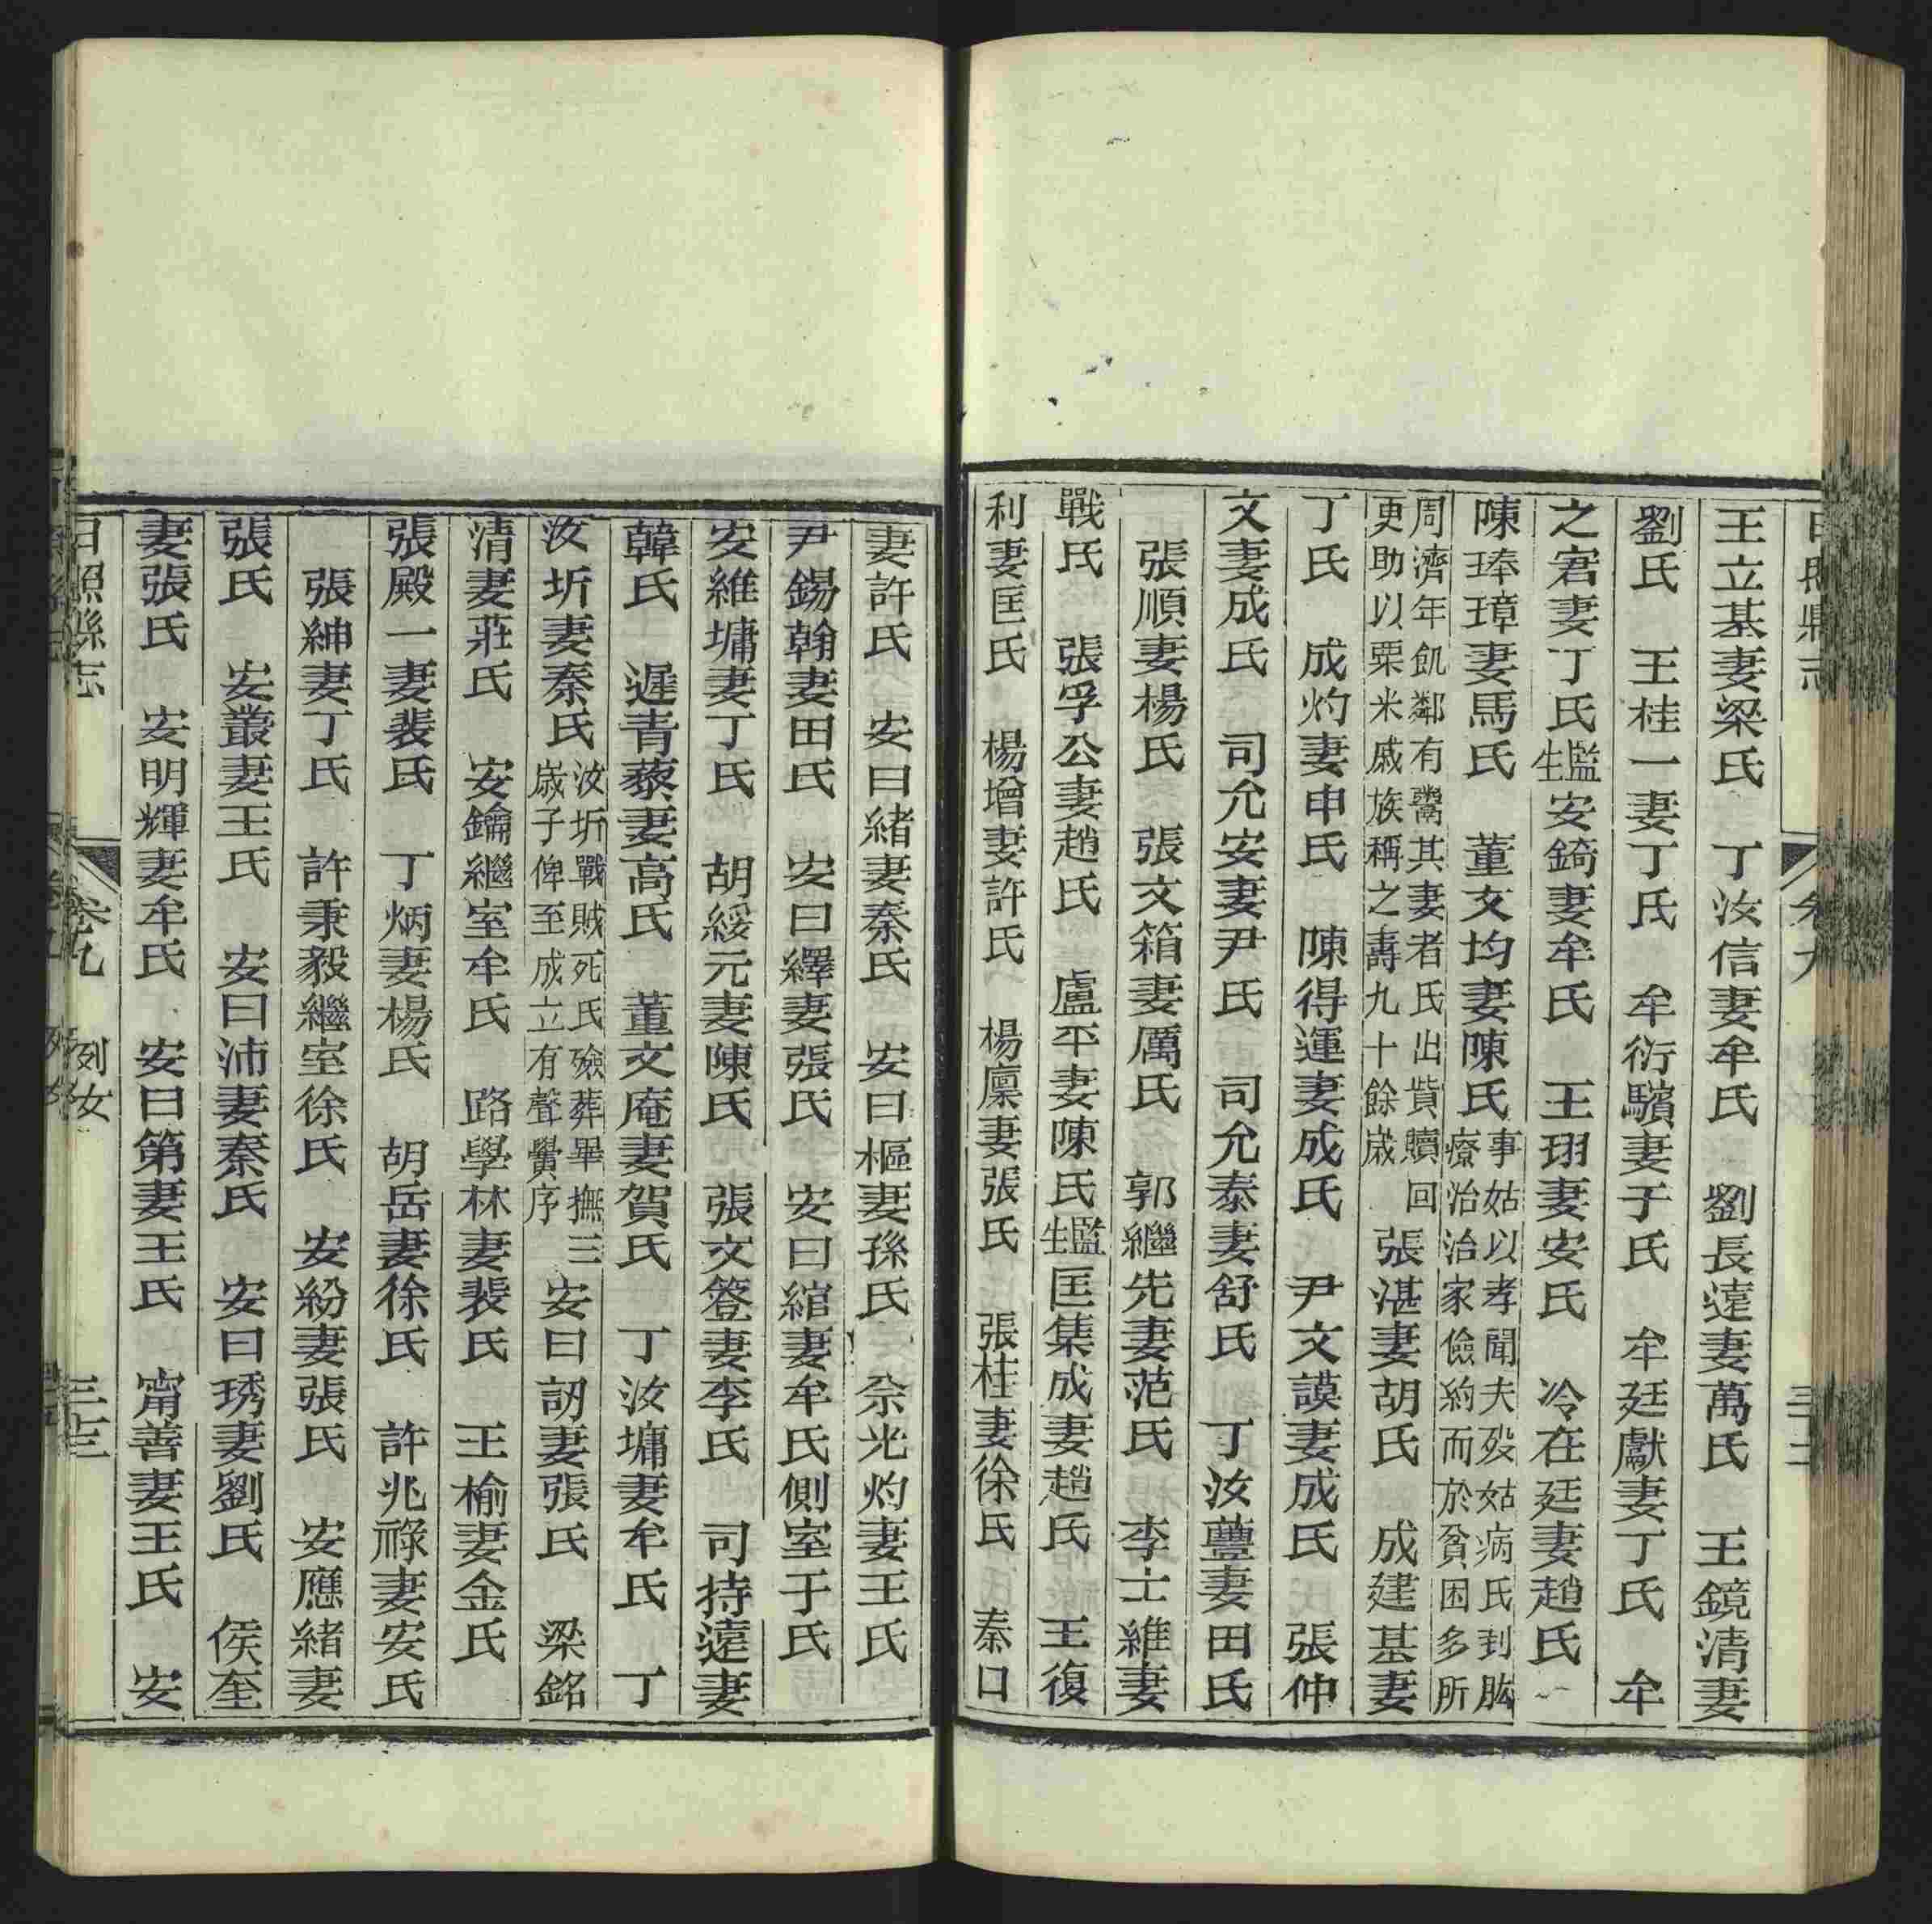 日照縣志
卷九
三十二
王立基妻梁氏　丁汝信妻牟氏　劉長達妻萬氏　王鏡清妻
劉氏　王桂一妻丁氏　牟衍驞妻于氏　牟廷獻妻丁氏　牟
之宭妻丁氏　監生安錡妻牟氏　王珝妻安氏　冷在廷妻趙氏
陳琫璋妻馬氏　董文均妻陳氏事姑以孝聞夫歿姑病氏刲肱療治治家儉約而於貧困多所
周濟年飢鄰有鬻其妻者氏出貲贖回更助以粟米戚族稱之壽九十餘歲　張湛妻胡氏　成建基妻
丁氏　成灼妻申氏　陳得運妻成氏　尹文謨妻成氏　張仲
文妻成氏　司允安妻尹氏　司允泰妻舒氏　丁汝虋妻田氏
張順妻楊氏　張文箱妻厲氏　郭繼先妻范氏　李士維妻
戰氏　張孚公妻趙氏　盧平妻陳氏　監生匡集成妻趙氏　王復
利妻匡氏　楊增妻許氏　楊廩妻張氏　張桂妻徐氏　秦口
妻許氏　安曰緒妻秦氏　安曰樞妻孫氏　佘光灼妻王氏
尹錫翰妻田氏　安曰繹妻張氏　安曰綰妻牟氏側室于氏
安維墉妻丁氏　胡綏元妻陳氏　張文簦妻李氏　司持遠妻
韓氏　遲青藜妻高氏　董文庵妻賀氏　丁汝墉妻牟氏　丁
汝圻妻秦氏汝圻戰賊死氏殮葬畢撫三歲子俾至成立有聲黌序　安曰訒妻張氏　梁銘
清妻莊氏　安鑰繼室牟氏　路學林妻裴氏　王榆妻金氏
張殿一妻裴氏　丁炳妻楊氏　胡岳妻徐氏　許兆祿妻安氏
張紳妻丁氏　許秉毅繼室徐氏　安紛妻張氏　安應緒妻
張氏　安叢妻王氏　安曰沛妻秦氏　安曰琇妻劉氏　侯奎
妻張氏　安明輝妻牟氏　安曰第妻王氏　甯善妻王氏　安
日照縣志
卷九　列女
三十三